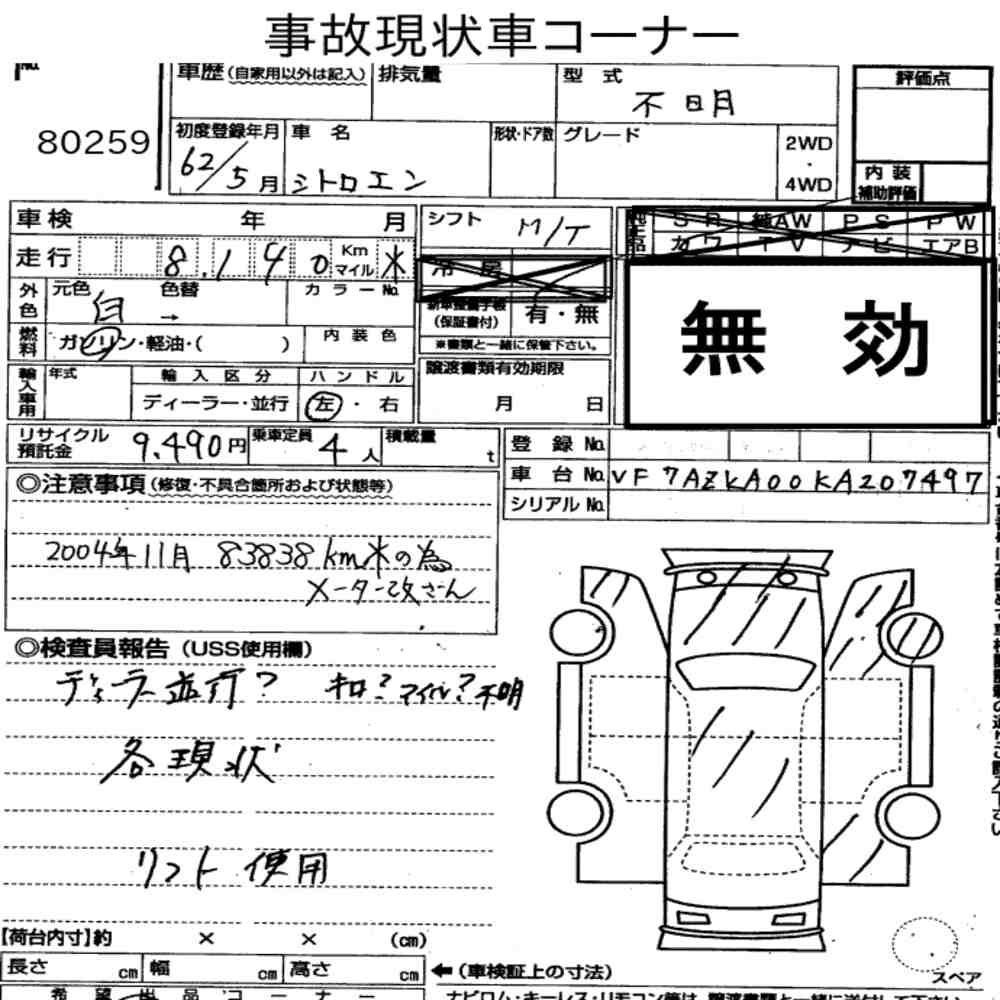 事故現状車コーナー
No.
80259
車歴(自家用以外は記入) 排気量 型式 不明 評価点
初度登録年月 車名 形状・ドア数 グレード 2WD・4WD
62/5月 シトロエン
内装補助評価
車検 年 月 シフト M/T
純正品 SR 純AW PS PW
カワ TV ナビ エアB
走行 8,140 Km マイル 米
冷房
外色 元色 白 色替 → カラーNo.
新車整備手帳(保証書付) 有・無
無効
燃料 ガソリン・軽油・( ) 内装色
※書類と一緒に保管下さい。
輸入車用 年式 輸入区分 ハンドル
ディーラー・並行 左・右
譲渡書類有効期限
月 日
リサイクル預託金 9,490円 乗車定員 4人 積載量 t
登録No.
車台No. VF7AZKA00KA207497
シリアルNo.
◎注意事項(修復・不具合箇所および状態等)
2004年11月 83838km米の為
メーター改ざん
◎検査員報告(USS使用欄)
ディーラー並行? キロ?マイル?不明
各現状
リフト使用
【荷台内寸】約 × × (cm)
長さ cm 幅 cm 高さ cm ←(車検証上の寸法)
スペア
希望出品コーナー